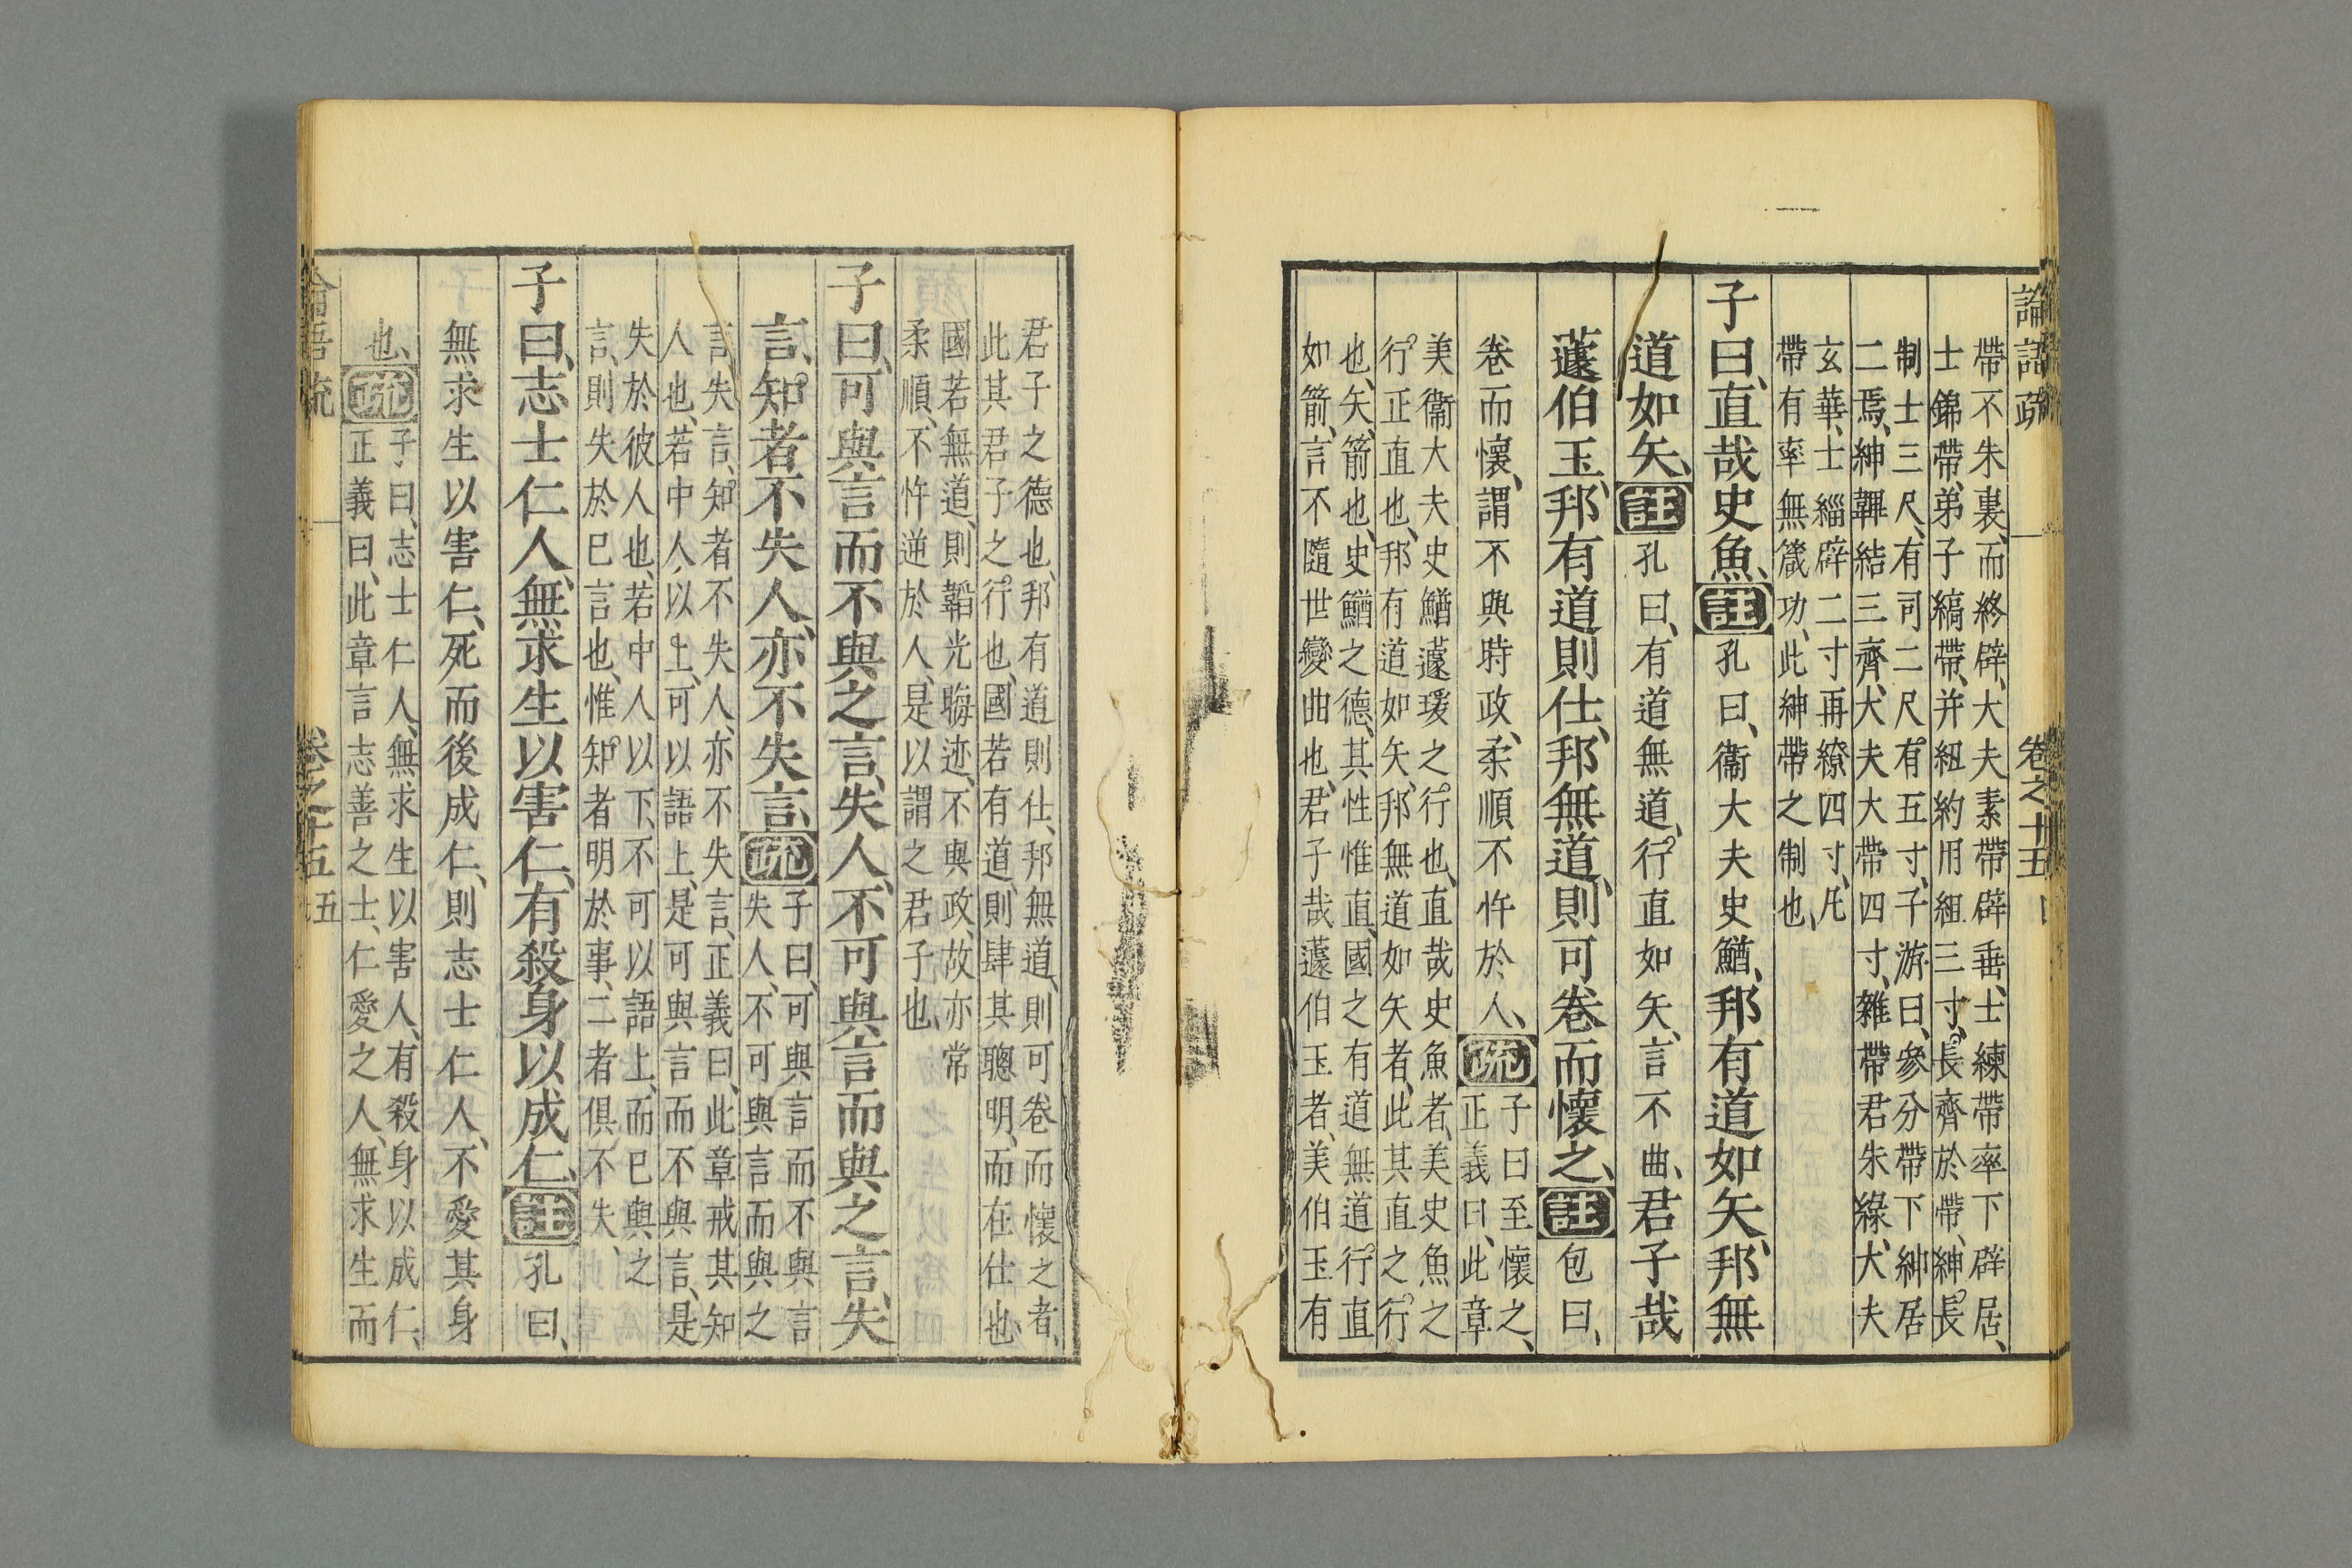 論語疏　卷之十五
帶不朱裏、而終辟、大夫素帶辟垂、士練帶率下辟居、
士錦帶、弟子縞帶、并紐約用組三寸、長齊於帶、紳長
制士三尺、有司二尺有五寸、子游曰、參分帶下紳居
二焉、紳韠結三齊、大夫大帶四寸、雜帶君朱綠、大夫
玄華、士緇辟二寸再繚四寸、凡
帶有率無箴功、此紳帶之制也、
子曰、直哉史魚、註孔曰、衞大夫史鰌、邦有道如矢、邦無
道如矢、註孔曰、有道無道、行直如矢、言不曲、君子哉
蘧伯玉、邦有道則仕、邦無道、則可卷而懷之、註包曰、
卷而懷、謂不與時政、柔順不忤於人、疏子曰至懷之、
正義曰、此章
美衞大夫史鰌蘧瑗之行也、直哉史魚者、美史魚之
行正直也、邦有道如矢、邦無道如矢者、此其直之行
也、矢、箭也、史鰌之德、其性惟直、國之有道無道、行直
如箭、言不隨世變曲也、君子哉蘧伯玉者、美伯玉有
君子之德也、邦有道則仕、邦無道、則可卷而懷之者、
此其君子之行也、國若有道、則肆其聰明、而在仕也、
國若無道、則韜光晦迹、不與政、故亦常
柔順、不忤逆於人、是以謂之君子也、
子曰、可與言而不與之言、失人、不可與言而與之言、失
言、知者不失人、亦不失言、疏子曰、可與言而不與言
失人、不可與言而與之
言失言、知者不失人、亦不失言、正義曰、此章戒其知
人也、若中人以上、可以語上、是可與言而不與言、是
失於彼人也、若中人以下、不可以語上、而已與之
言、則失於已言也、惟知者明於事、二者俱不失、
子曰、志士仁人、無求生以害仁、有殺身以成仁、註孔曰、
無求生以害仁、死而後成仁、則志士仁人、不愛其身
也、疏子曰、志士仁人、無求生以害人、有殺身以成仁、
正義曰、此章言志善之士、仁愛之人、無求生而
卷之十五　五